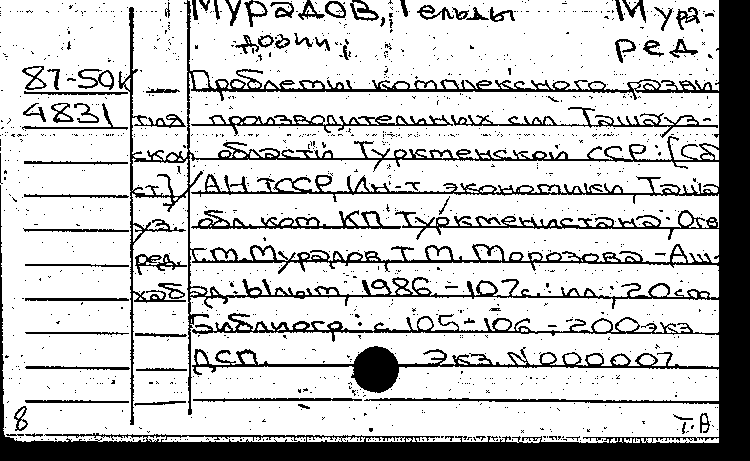 Мурадов, Гельды Мура-
ред.
87-50К Проблемы комплексного разви-
4831 тия производительных сил Ташауз-
ской области Туркменской ССР: [Сб
ст] / АН ТССР, Ин-т экономики, Таша
уз. обл. ком. КП Туркменистана; Отв
ред. Г.М.Мурадов, Т.М. Морозова -Аш-
хабад: Ылым, 1986. -107с.: ил.; 20см
Библиогр.: с. 105-106 - 200экз
ДСП. Экз. N 000007
8 Т.В